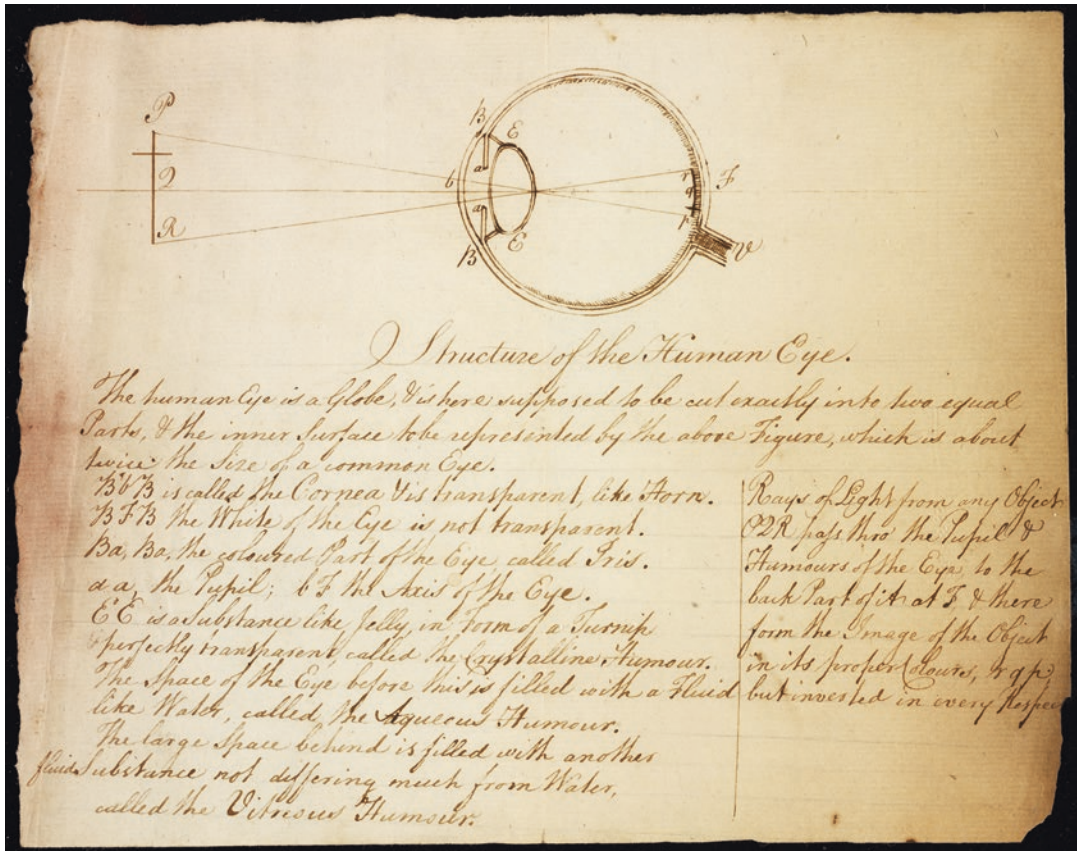 P
Q
R
B
E
a
b
a
E
B
r
q
p
F
V
Structure of the Human Eye.
The human Eye is a Globe, & is here supposed to be cut exactly into two equal
Parts, & the inner Surface to be represented by the above Figure, which is about
twice the Size of a common Eye.
BbB is called the Cornea & is transparent, like Horn.
BFB the White of the Eye is not transparent.
Ba, Ba, the coloured Part of the Eye called Iris.
a a, the Pupil; bF the Axis of the Eye.
EE is a Substance like Jelly, in Form of a Turnip
& perfectly transparent, called the Crystalline Humour.
The Space of the Eye before this is filled with a Fluid
like Water, called the Aqueous Humour.
The large Space behind is filled with another
fluid Substance not differing much from Water,
called the Vitreous Humour.
Rays of Light from any Object
PQR pass thro' the Pupil &
Humours of the Eye to the
back Part of it at F, & there
form the Image of the Object
in its proper Colours, rqp,
but inverted in every Respec